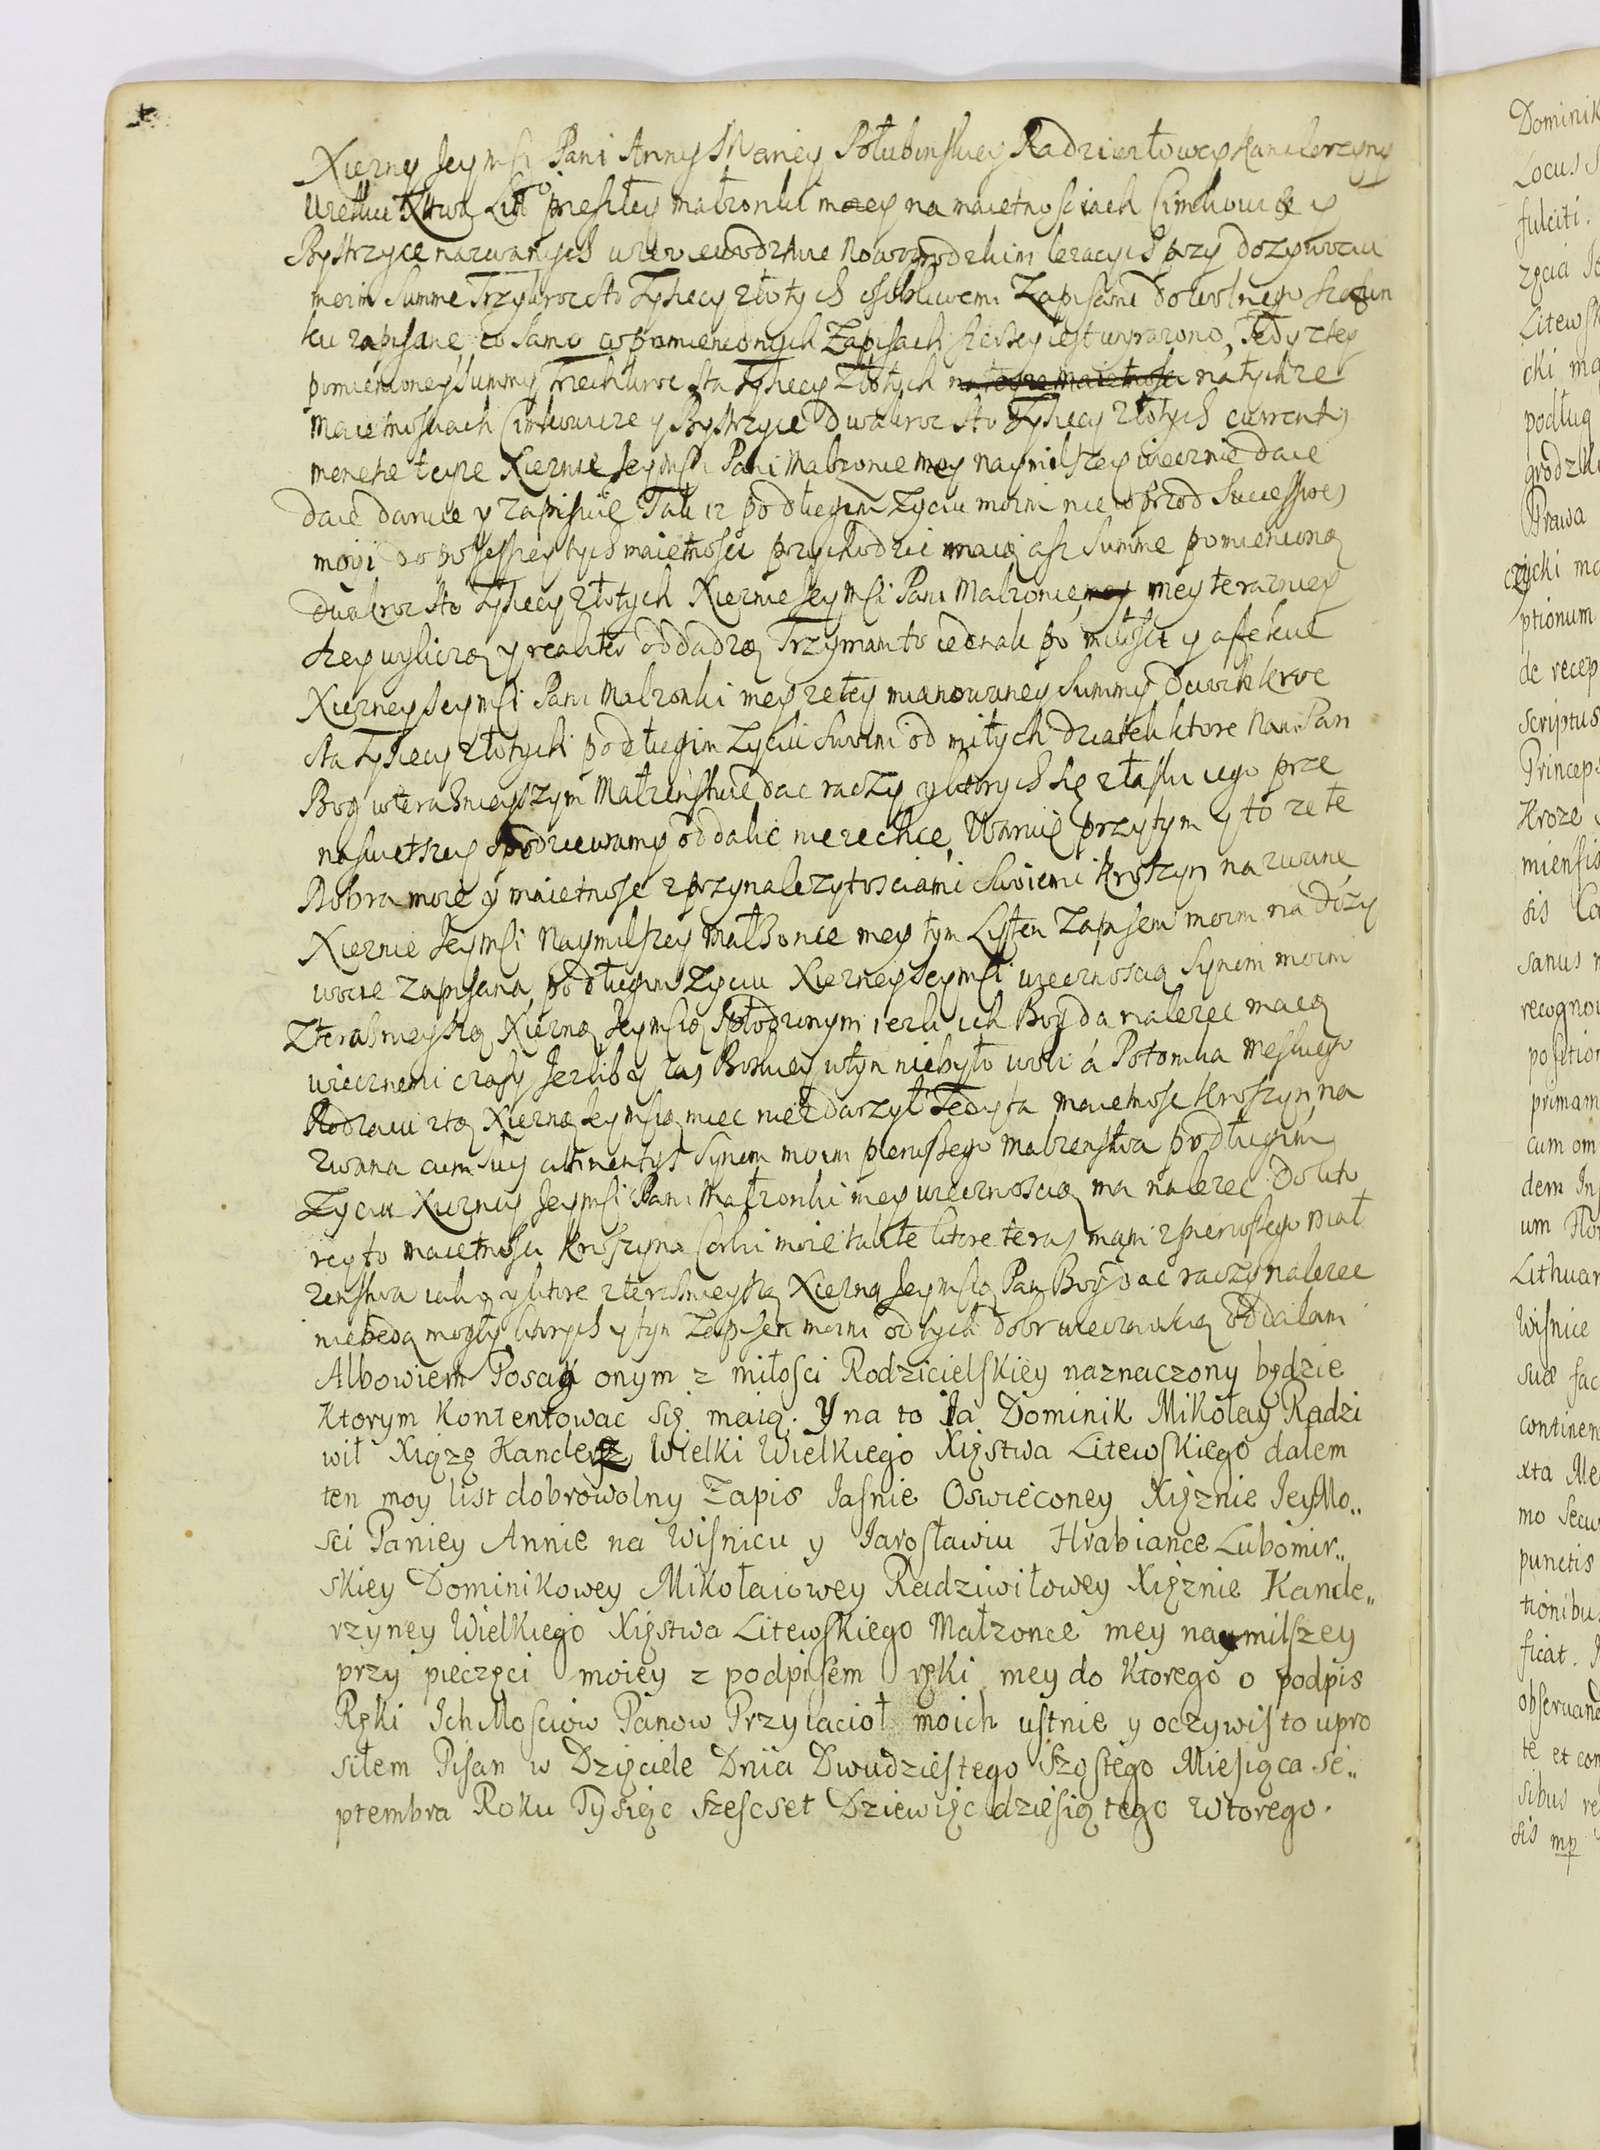 Xiezny Jeymsci Pani Anny Mariey Połubinskiey Radziwiłowey Kanclerzyny
Wielkiey Xstwa Lit przeszłey małzonki moiey na maietnosciach Cimkowicze y
Bystrzyce nazwanych w Woiewodztwie Nowogrodzkim lezacych przy dozywociu
moim Summe Trzykroc sto Tysiecy złotych osobliwemi Zapisami do wolnego szafun
ku zapisane, co samo w pomienionych Zapisach szerzey iest wyrazono, Tedy z tey
pomienioney summy Trzechkroc sta Tysiecy Złotych na tychze maietnosci na tychze
Maietnosciach Cimkowicze y Bystrzyce Dwakroc sto Tysiecy złotych currentis
monetæ teyze Xieznie Jeymsci Pani Małzonce mey naymilszey wiecznie daie
daie daruie y zapisuie Tak iz po długim Zyciu moim nie wprzod Successores
moi do possessyey tych maietnosci przychodzic maią asz Summe pomienioną
dwakroc sto Tysiecy złotych Xieznie Jeymsci Pani Małzonce mey mey teraznieyszey
szey wyliczą y realiter oddadzą Trzymam to iednak po miłosci y afekcie
Xiezney Jeymsci Pani Małzonki mey ze tey mianowaney Summy Dwochkroc
sta Tysiecy złotych po długim Zyciu swoim od miłych dziatek ktore Nam Pan
Bog w terasnieyszym Małzenstwie dac raczy y ktorych się z łaski iego prze
naswietszey spodziewamy oddalic niezechce, Waruię przytym y to ze te
Dobra moie y maietnosc z przynalezytosciami swoiemi Kroszyn nazwane
Xieznie Jeymsci Naymilszey Małzonce mey tym Listem Zapisem moim na dozy
wocie zapisana, po długim Zyciu Xiezney Jeymsci wiecznoscią Synom moim
Z terasnieyszą Xiezną Jeymscią Spłodzonym iezli ich Bog da nalezec maią
wiecznemi czasy Jezliby zas Boskiey w tym niebyło woli a Potomka męskiego
Rodzaiu z tą Xiezną Jeymscią miec nie zdarzył Tedy ta maietnosc Kroszyn na
zwana cum suis attinentiis Synom moim pierwszego małzenstwa po długim
Zyciu Xiezney Jeymsci Pani Małzonki mey wiecznoscią ma nalezec Do kto
rey to maietnosci Kroszyna Corki moie tak te ktore teraz mam z pierwszego Mał
zenstwa iako y ktore z terasnieyszą Xiezną Jeymscią Pan Bog dac raczy nalezec
niebędą mogły ktorych y tym Zapisem moim od tych dobr wiecznoscią oddalam
Albowiem Posag onym z miłosci Rodzicielskiey naznaczony będzie
Ktorym Kontentowac się maią. Y na to Ja Dominik Mikołay Radzi
wił Xiąze Kanclerz Wielki Wielkiego Xięstwa Litewskiego dałem
ten moy list dobrowolny Zapis Jasnie Oswieconey Xięznie JeyMo„
sci Paniey Annie na Wisnicu y Jarosławiu Hrabiance Lubomir„
skiey Dominikowey Mikołaiowey Radziwiłowey Xięznie Kancle„
rzyney Wielkiego Xięstwa Litewskiego Małzonce mey naymilszey
przy pieczęci moiey z podpisem ręki mey do ktorego o podpis
Ręki IchMosciow Panow Przyiacioł moich ustnie y oczywisto upro
siłem Pisan w Dzięciele Dnia Dwudziestego Szostego Miesiąca Se„
ptembra Roku Tysiąc szescset Dziewięcdziesiątego wtorego.
Dominik
Locus S
fulciti.
zęcia Je
Litewsk
cki ma
podług
grodzki
Prawa
czycki ma
ptionum
de recep
scriptus
Princeps
Kroze
miensis
sis Ca
sanus
recognov
position
primam
cum om
dem In
um Flor
Lithuan
Wisnice
suæ fac
continen
xta Me
mo secu
punctis
tionibus
ficat.
observand
te et con
sibus re
sis mp